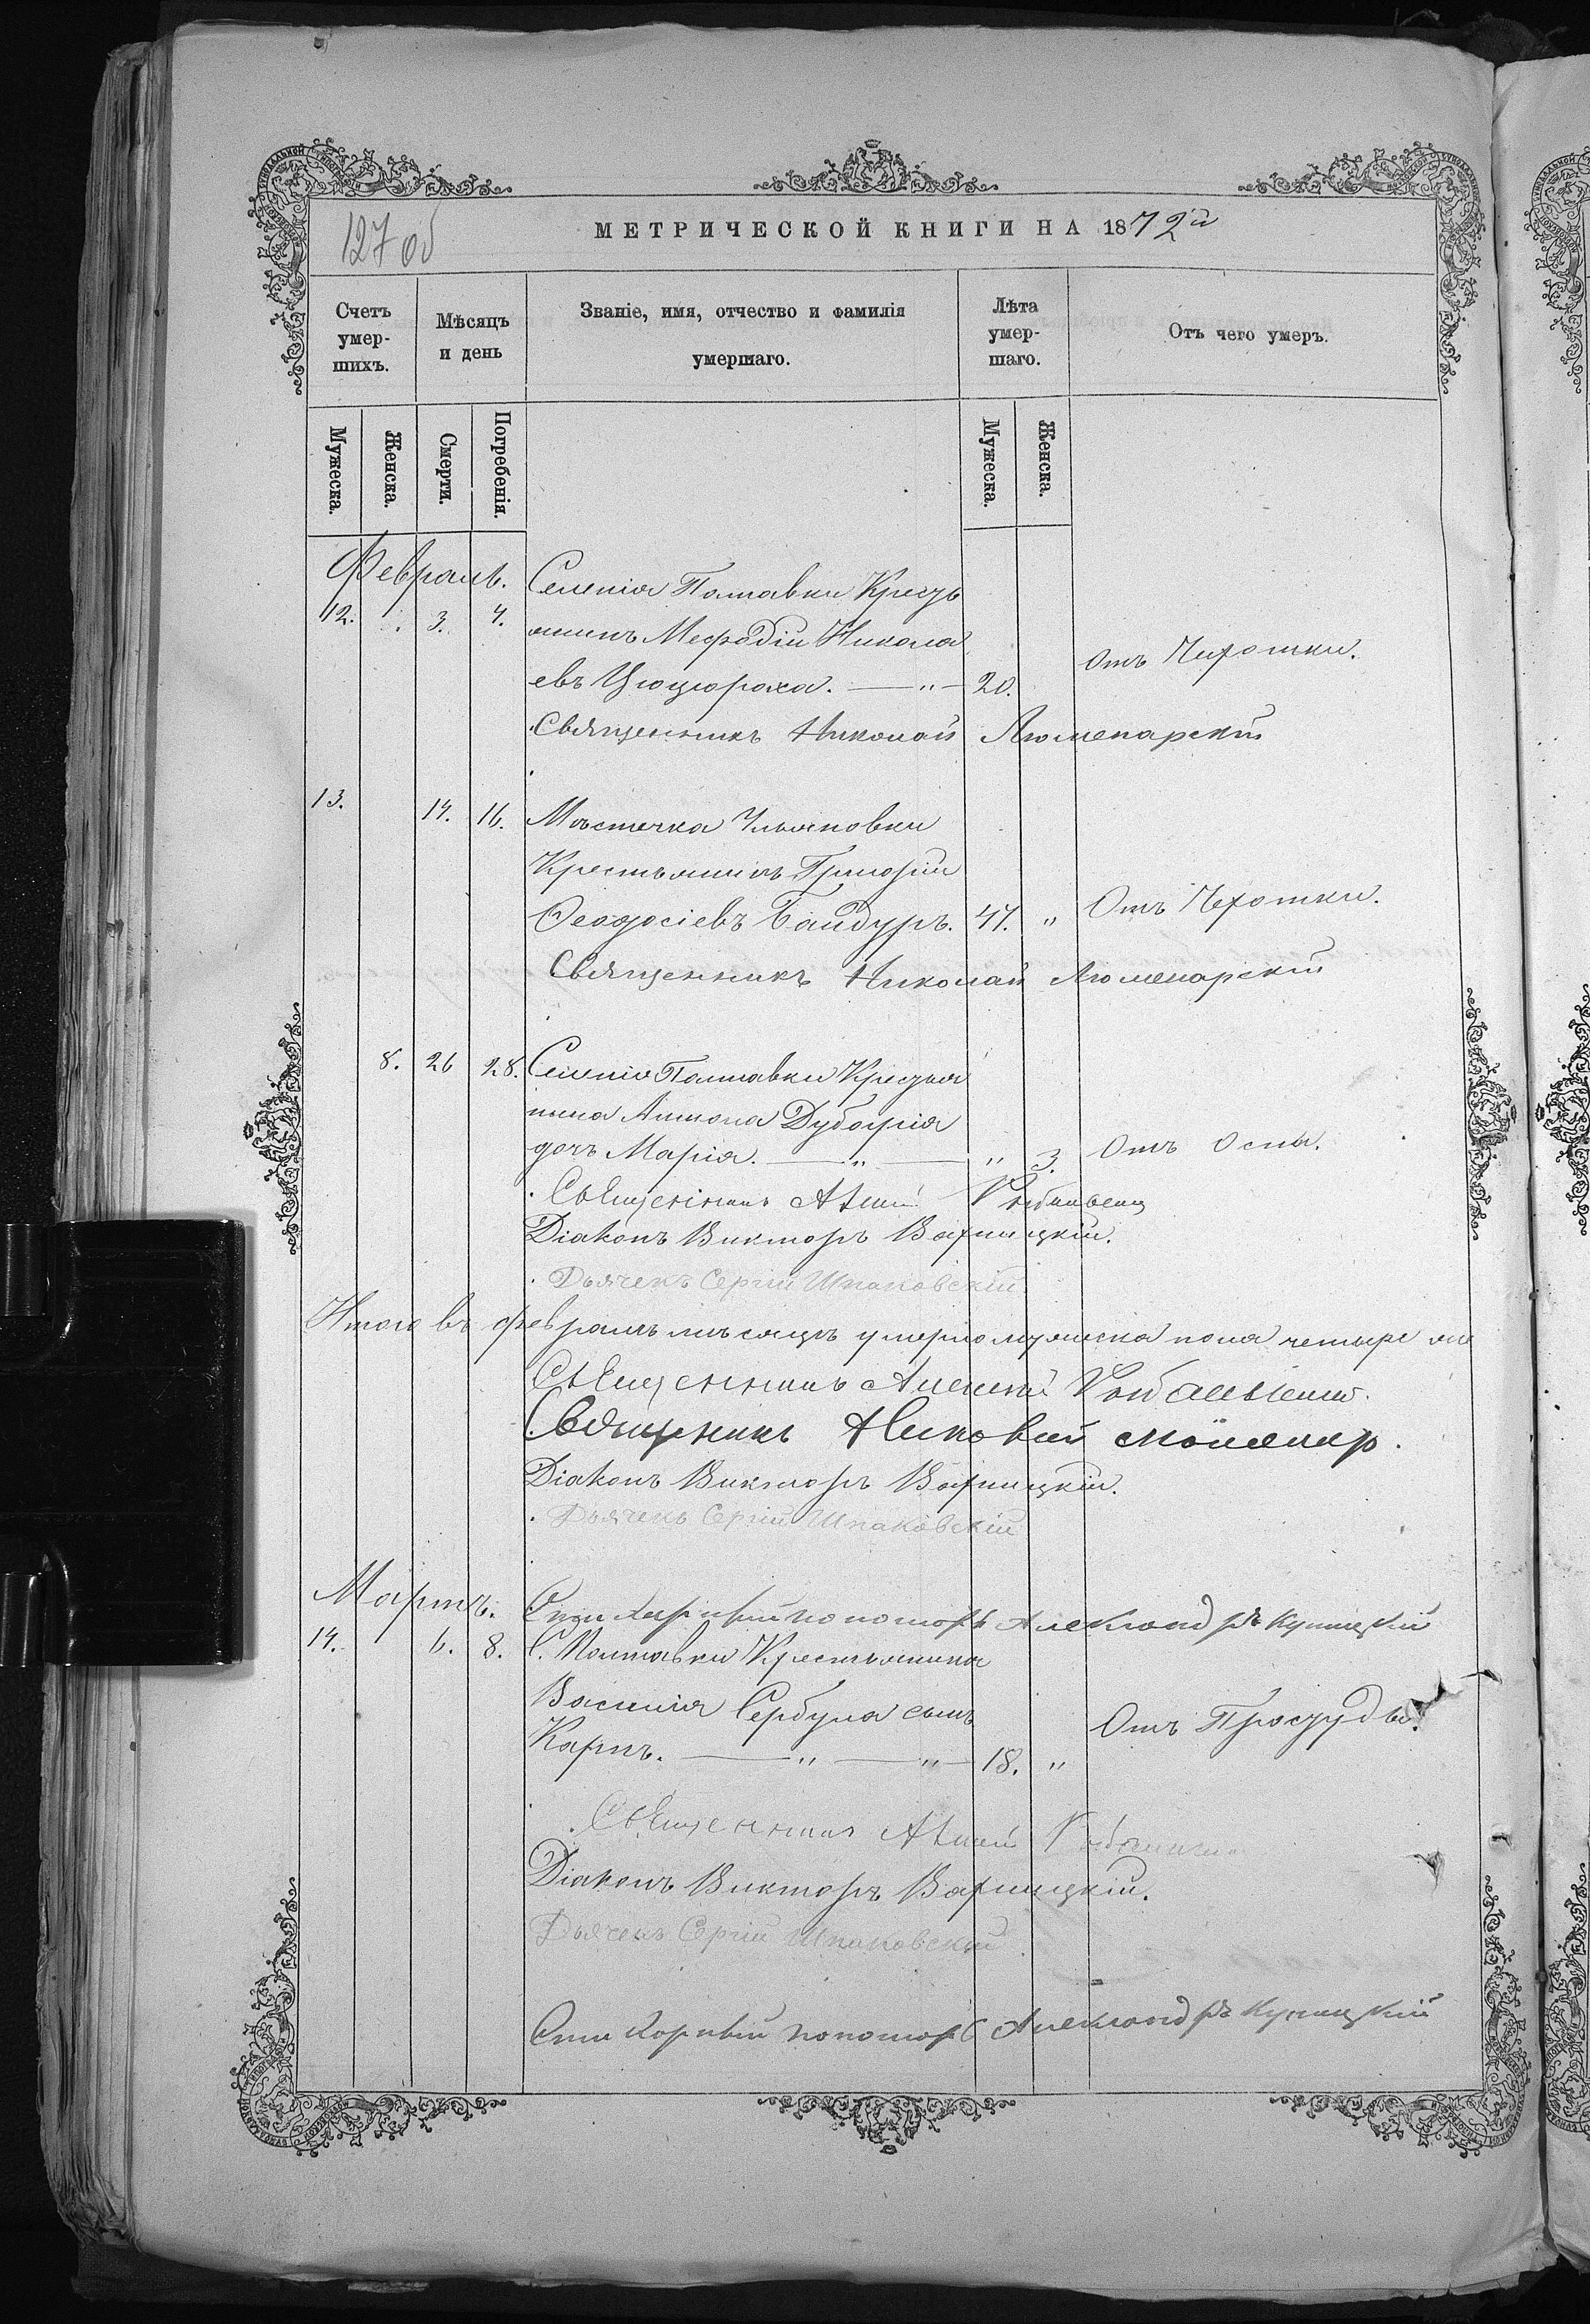 127 об
МЕТРИЧЕСКОЙ КНИГИ НА 1872й
Счетъ умер-шихъ.
Мѣсяцъ и день
Званіе, имя, отчество и фамилія умершаго.
Лѣта умер-шаго.
Отъ чего умеръ.
Мужеска.
Женска.
Смерти.
Погребенія.
Мужеска.
Женска.
Февраль.
Селенія Полтавки Кресть
12. 3. 4. янинъ Мефодій Никола
евъ Цюцюроха. — " — 20. Отъ Чихотки.
Священникъ Николай
13. 14. 16. Мѣстечка Ульяновки
Крестьянинъ Григорій
Феодосіевъ Бандуръ. 47. " Отъ Чехотки.
Священникъ Николай
8. 26 28. Селенія Полтавки Крестья
нина Антона
дочь Марія. — " — " 3. Отъ Оспы.
Священникъ
Діаконъ Викторъ Варницкій.
Дьячекъ Сергій Шпаковскій
Итого въ Февралѣ мѣсяцѣ умерло мужеска пола четыре
Священникъ Алексій
Священникъ
Діаконъ Викторъ Варницкій.
Дьячекъ Сергій Шпаковскій
Мартъ.
пономарь Александръ Куницкій
14. 6. 8. С. Полтавки Крестьянина
Василія Сербула сынъ
Карпъ. — " — " — 18. " Отъ Простуды.
Священникъ
Діаконъ Викторъ Варницкій.
Дьячекъ Сергій Шпаковскій
пономарь Александръ Куницкій